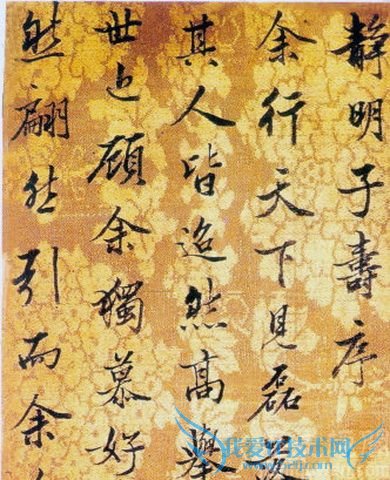 靜明子壽序
余行天下見磊落
其人皆迢然高舉
世上顧余獨慕好
然翩然引而余
我爱IT技术网